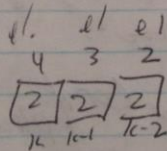 el. el el
4 3 2
2 2 2
k k-1 k-2